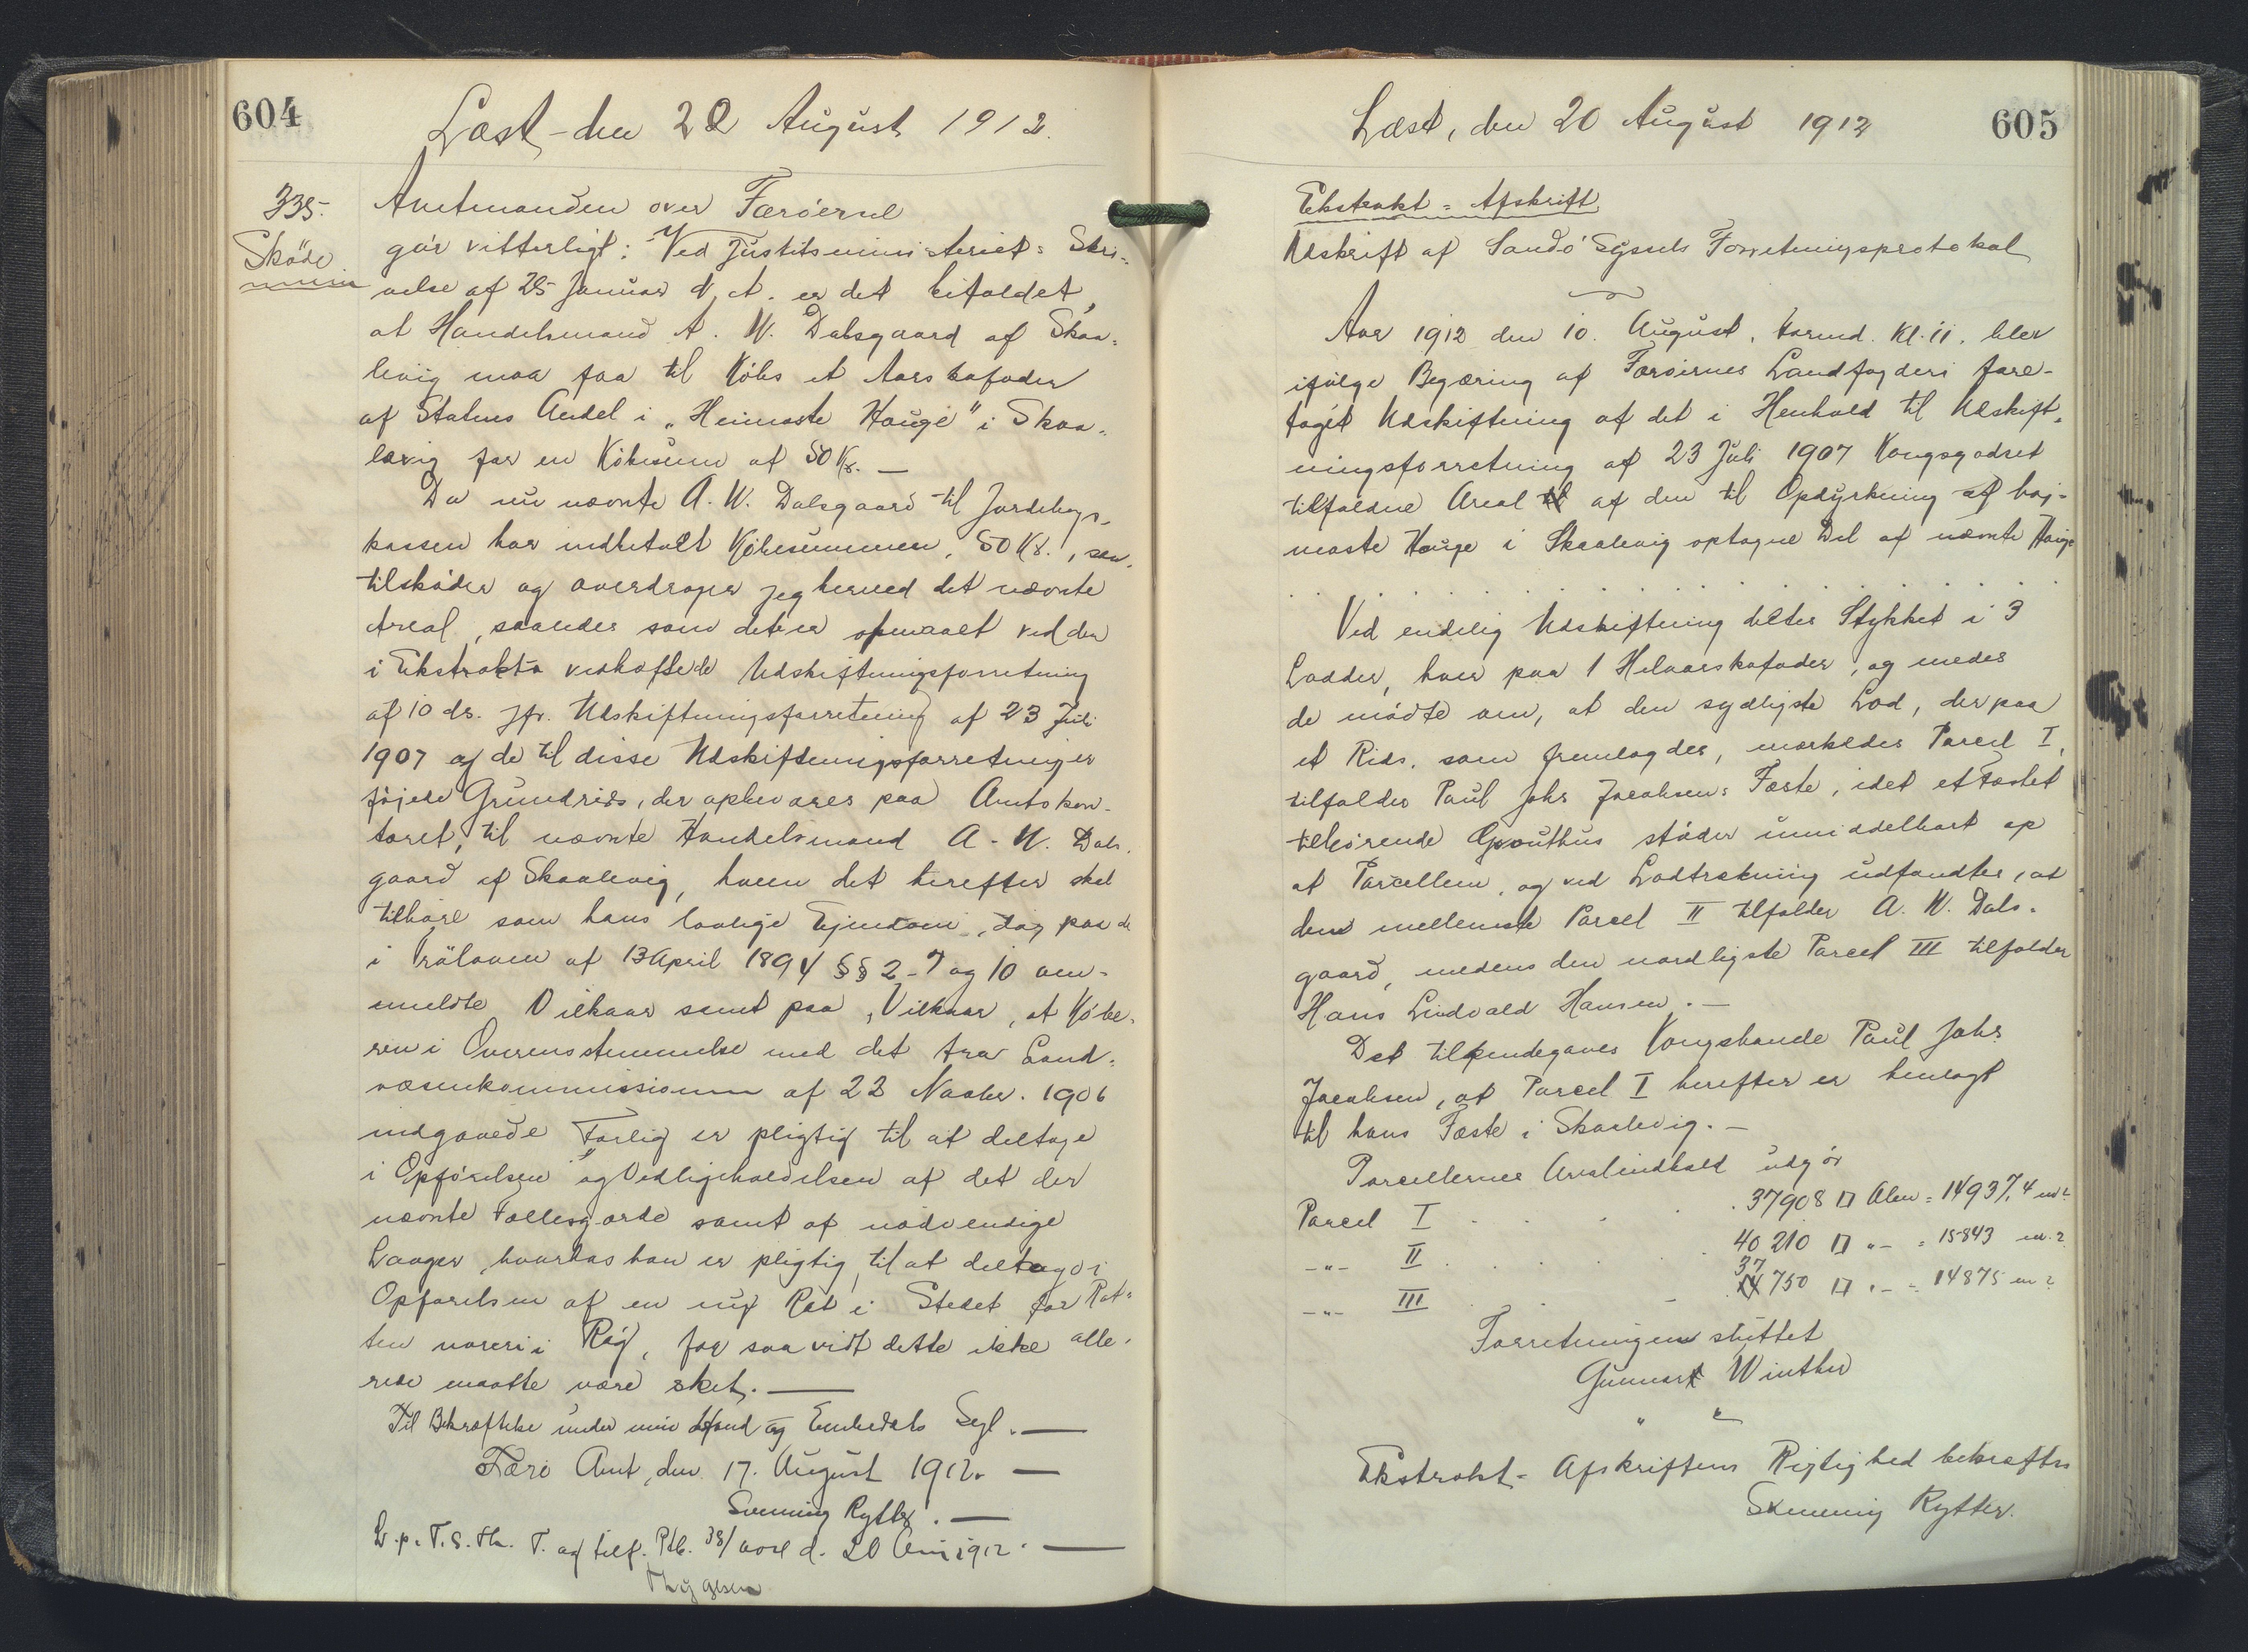 604
Læst den 20 August 1912.
335.
Skøde
Amtmanden over Færøerne
gør vitterligt: Ved Justitsministeriets Skri-
velse af 25 Januar d. A. er det bifaldet,
at Handelsmand A. W. Dalsgaard af Skaa-
levig maa faa til Købs et Aars Kofoder
af Statens Andel i "Heimaste Hauge" i Skaa-
levig for en Købesum af 50 Kr. —
Da nu nævnte A. W. Dalsgaard til Jordebogs-
kassen har indbetalt Købesummen, 50 Kr., saa
tilskøder og overdrager jeg herved det nævnte
Areal, saaledes som det er opmaalt ved den
i Ekstrakt vedhæftede Udskiftningsforretning
af 10 ds. jfr. Udskiftningsforretning af 23 Juli
1907 og de til disse Udskiftningsforretninger
føjede Grundrids, der opbevares paa Amtskon-
toret, til nævnte Handelsmand A. W. Dals-
gaard af Skaalevig, hvem det herefter skal
tilhøre som hans lovlige Ejendom, dog paa de
i Prøloven af 13 April 1894 §§ 2-7 og 10 om-
meldte Vilkaar samt paa Vilkaar, at Købe-
ren i Overensstemmelse med det for Land-
væsenkommissionen af 22 Novbr. 1906
indgaaede Forlig er pligtig til at deltage
i Opførelsen og Vedligeholdelsen af det der
nævnte Fællesgærde samt af nødvendige
Laager, hvorhos han er pligtig til at deltage i
Opførelsen af en ny Ræt i Stedet for Ræt-
ten norer i Røg, for saa vidt dette ikke alle-
rede maatte være sket. —
Til Bekræftelse under min Haand og Embedets Segl. —
Færø Amt, den 17. August 1912. —
Svenning Rytter. —
L. p. T. S. Th. T. og tilf. Ptb. d. 20 Aug 1912. —
Thygesen
Læst, den 20 August 1912
605
Ekstrakt = Afskrift
Udskrift af Sandø Syssels Forretningsprotokol
Aar 1912 den 10. August, Formd. Kl. 11. blev
ifølge Begæring af Færøernes Landfogderi fore-
taget Udskiftning af det i Henhold til Udskift-
ningsforretning af 23 Juli 1907 Kongsgodset
tilfaldne Areal af den til Opdyrkning af høj-
maste Hauge i Skaalevig optagne Del af nævnte Hauge
. . . . . . . . . . . . . .
Ved endelig Udskiftning deltes Stykket i 3
Lodder, hver paa 1 Helaarskofoder, og enedes
de mødte om, at den sydligste Lod, der paa
et Rids, som fremlagdes, mærkedes Parcel I,
tilfalder Paul Johs Jacobsens Fæste, idet et Fæstet
tilhørende Grouthus støder umiddelbart op
at Parcellen, og ved Lodtrækning udfandtes, at
den mellemste Parcel II tilfalder A. W. Dals-
gaard, medens den nordligste Parcel III tilfalder
Hans Lindvald Hansen. —
Det tilkendegaves Kongsbonde Paul Johs.
Jacobsen, at Parcel I herefter er henlagt
til hans Fæste i Skaalevig. —
Parcellernes Arealindhold udgør
Parcel I . . . . 37908 □ Alen = 14937,4 m2
-"- II . . . . 40 210 □ "- = 15843 m2
-"- III . . . . 37 750 □ "- = 14875 m2
Forretningen sluttet
Gunnar Winther
" "
Ekstrakt-Afskriftens Rigtighed bekræftes
Svenning Rytter.